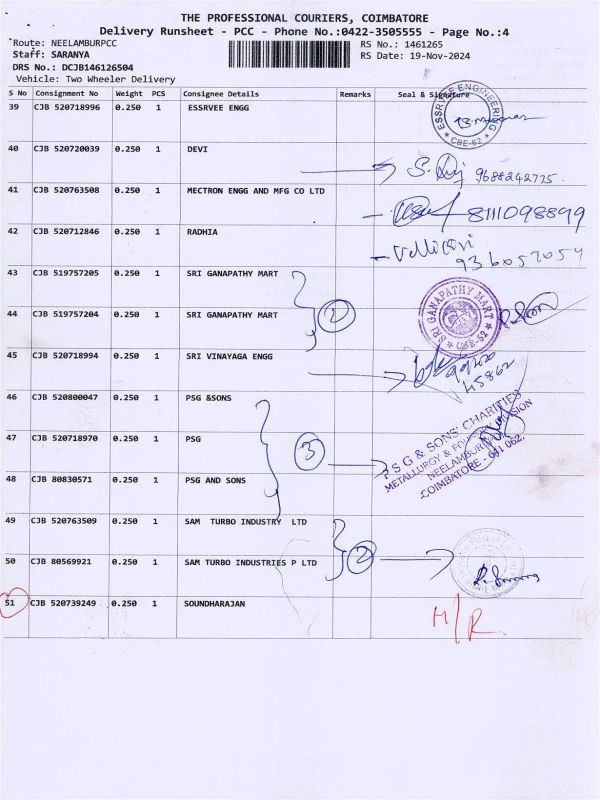 THE PROFESSIONAL COURIERS, COIMBATORE
Delivery Runsheet - PCC - Phone No.:0422-3505555 - Page No.:4
Route: NEELAMBURPCC RS No.: 1461265
Staff: SARANYA RS Date: 19-Nov-2024
DRS No.: DCJB146126504
Vehicle: Two Wheeler Delivery
S No Consignment No Weight PCS Consignee Details Remarks Seal & Signature
39 CJB 520718996 0.250 1 ESSRVEE ENGG
ESSRVEE ENGINEERING
* CBE-62 *
40 CJB 520720039 0.250 1 DEVI
9688242775
41 CJB 520763508 0.250 1 MECTRON ENGG AND MFG CO LTD
8111098899
42 CJB 520712846 0.250 1 RADHIA
9360057054
43 CJB 519757205 0.250 1 SRI GANAPATHY MART
SRI GANAPATHY MART
* CBE-62 *
44 CJB 519757204 0.250 1 SRI GANAPATHY MART
45 CJB 520718994 0.250 1 SRI VINAYAGA ENGG
45862
46 CJB 520800047 0.250 1 PSG &SONS
47 CJB 520718970 0.250 1 PSG
3
P S G & SONS' CHARITIES
METALLURGY & FOUNDRY DIVISION
NEELAMBUR
COIMBATORE - 641 062.
48 CJB 80830571 0.250 1 PSG AND SONS
49 CJB 520763509 0.250 1 SAM TURBO INDUSTRY LTD
2
50 CJB 80569921 0.250 1 SAM TURBO INDUSTRIES P LTD
51 CJB 520739249 0.250 1 SOUNDHARAJAN
H/R